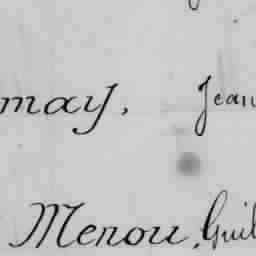 may, Jean
Menou, Guil